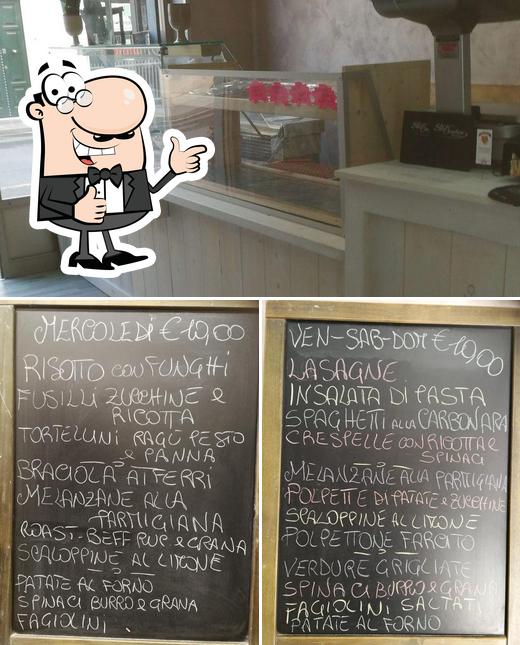 MERCOLEDI € 10,00
RISOTTO con FUNGHI
FUSILLI ZUCCHINE e
RICOTTA
TORTELLINI RAGÙ PESTO
e PANNA
BRACIOLA AI FERRI
MELANZANE ALLA
PARMIGIANA
ROAST-BEFF RUC e GRANA
SCALOPPINE AL LIMONE
PATATE AL FORNO
SPINACI BURRO e GRANA
FAGIOLINI.
VEN-SAB-DOM € 10,00
LASAGNE
INSALATA DI PASTA
SPAGHETTI ALLA CARBONARA
CRESPELLE CON RICOTTA e
SPINACI
MELANZANE ALLA PARMIGIANA
POLPETTE DI PATATE e ZUCCHINE
SCALOPPINE AL LIMONE
POLPETTONE FARCITO
VERDURE GRIGLIATE
SPINACI BURRO e GRANA
FAGIOLINI SALTATI
PATATE AL FORNO